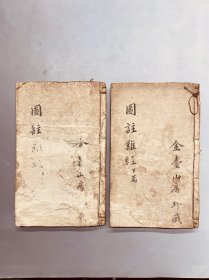 圖註難
金臺山房
圖註難經下篇
金臺山房珍藏